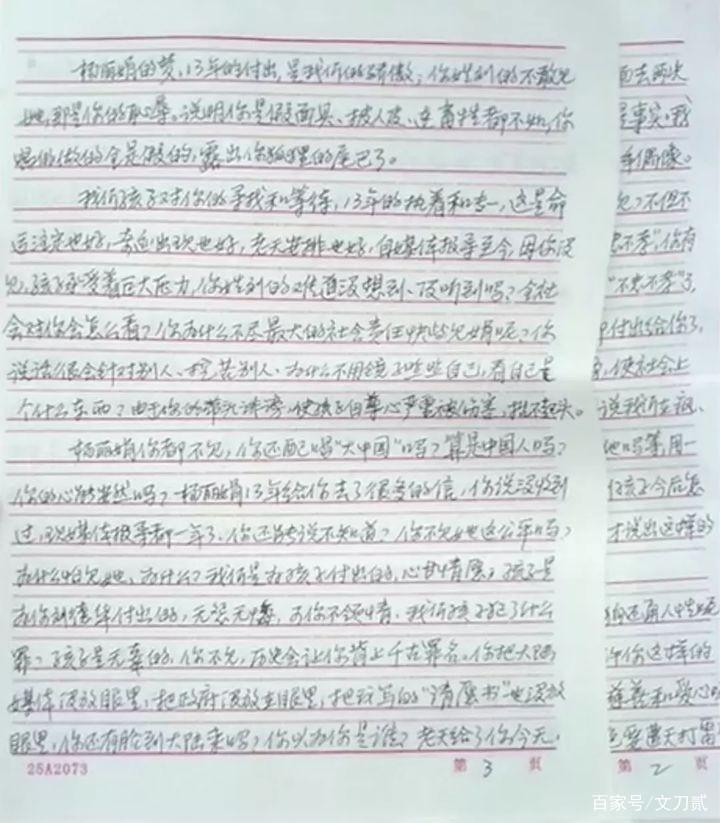 杨丽娟的梦,13年的付出,是我们的骄傲,你姓刘的不敢见
她,那是你的耻辱。说明你是假面具、披人皮、连畜牲都不如,你
唱的做的全是假的,露出你狐狸的尾巴了。
我们孩子对你的寻找和等待,13年的执着和专一,这是命
运注定也好,奇迹出现也好,老天安排也好,自媒体报导至今,因你没
见,孩子承受着巨大压力,你姓刘的难道没想到、没听到吗?全社
会对你会怎么看?你为什么不尽最大的社会责任快些见娟呢?你
说话很会针对别人、挖苦别人、为什么不用镜子照照自己,看自己是
个什么东西?由于你的 使孩子自尊心严重被伤害,抬不起头。
杨丽娟你都不见,你还配唱"大中国"吗?算是中国人吗?
你的心能安然吗?杨丽娟13年给你去了很多的信,你说没收到
过,现媒体报导都一年了,你还能说不知道?你不见她这公平吗?
为什么怕见她,为什么?我们是为孩子付出的,心甘情愿,孩子是
为你刘德华付出的,无怨无悔,可你不领情,我们孩子犯了什么
罪?孩子是无辜的,你不见,历史会让你背上千古罪名。你把大陆
媒体没放眼里,把政府没放在眼里,把我写的"请愿书"也没放
眼里,你还有脸到大陆来吗?你以为你是谁?老天给了你今天,
25A2073
第 3 页
面去两次
是事实,我
年偶像。
见?不但不
忠不孝",你有
"不忠不孝"了,
付出给你了,
使社会上
说我们在疯、
她吗等,用一
孩子今后怎
才说出这样的
你这样的
慈善和爱心
要遭天打雷
第 2 页
百家号/文刀贰